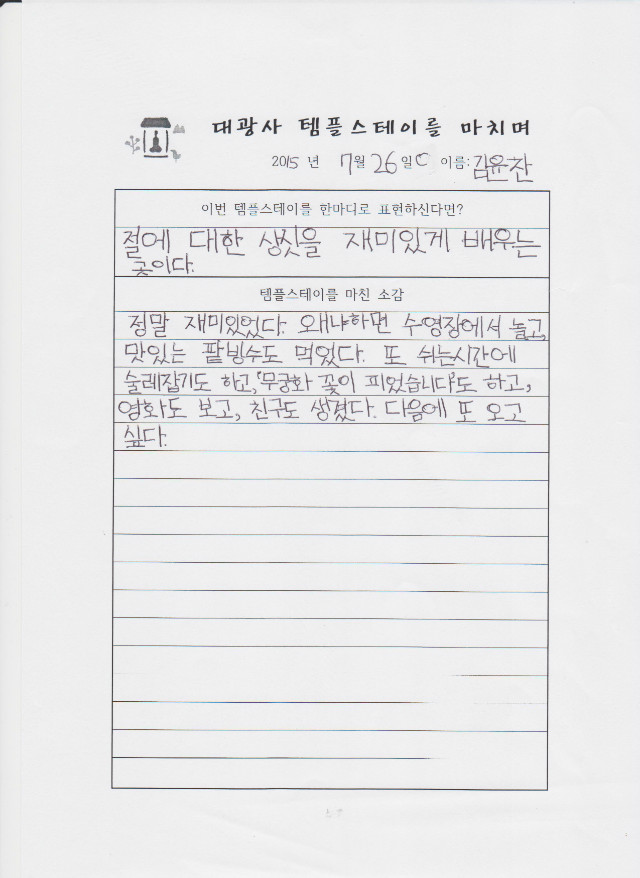 대광사 템플스테이를 마치며
2015 년 7월 26일 이름: 김윤찬
이번 템플스테이를 한마디로 표현하신다면?
절에 대한 생짓을 재미있게 배우는
곳이다.
템플스테이를 마친 소감
정말 재미있었다. 왜냐하면 수영장에서 놀고,
맛있는 팥빙수도 먹었다. 또 쉬는시간에
술레잡기도 하고, '무궁화 꽃이 피었습니다'도 하고,
영화도 보고, 친구도 생겼다. 다음에 또 오고
싶다.